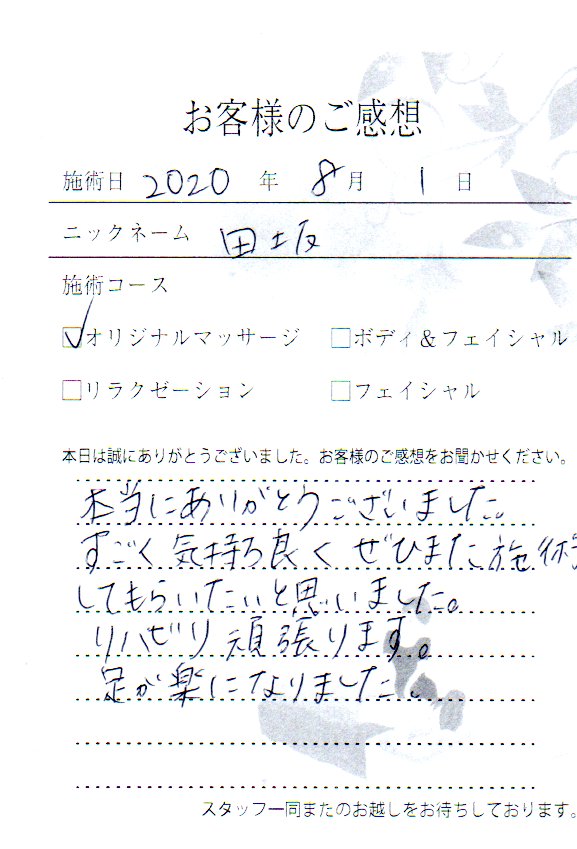 お客様のご感想
施術日 2020 年 8月 1 日
ニックネーム 田坂
施術コース
オリジナルマッサージ ボディ&フェイシャル
リラクゼーション フェイシャル
本日は誠にありがとうございました。お客様のご感想をお聞かせください。
本当にありがとうございました。
すごく気持ち良く ぜひまた施術
してもらいたいと思いました。
リハビリ頑張ります。
足が楽になりました。
スタッフ一同またのお越しをお待ちしております。